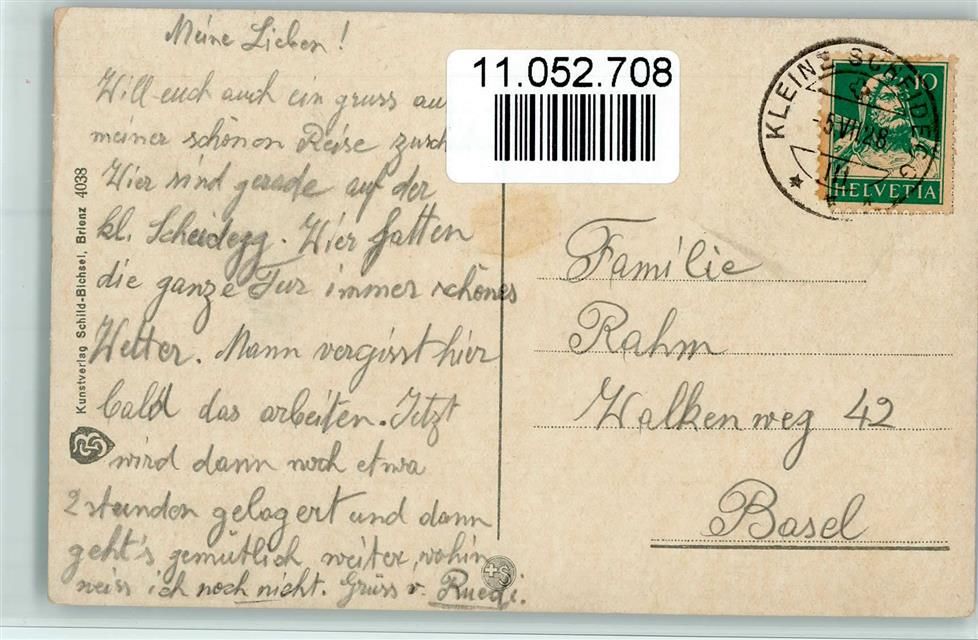 Meine Lieben!
Will euch auch ein gruss au
meiner schönen Reise zusch
Wir sind gerade auf der
kl. Scheidegg. Wir hatten
die ganze Tur immer schönes
Wetter. Mann vergisst hier
bald das arbeiten. Jetzt
wird dann noch etwa
2 stunden gelagert und dann
geht's gemütlich weiter, wohin
weiss ich noch nicht. Grüss v. Ruedi.
Kunstverlag Schild-Bichsel, Brienz 4038
11.052.708
KLEINE SCHEIDEGG
10
HELVETIA
Familie
Rahm
Walkenweg 42
Basel